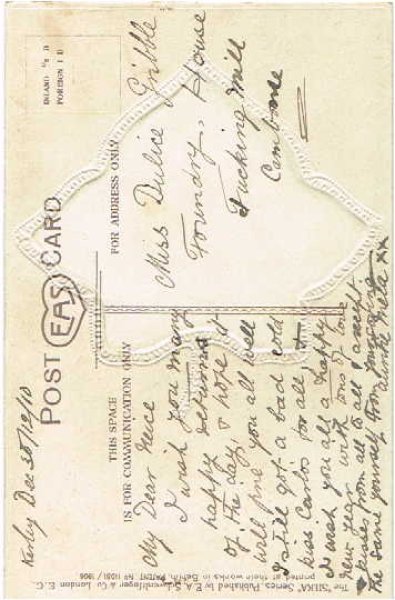 Kerley Dec 30/12/10
POST EAS CARD
INLAND ½ D
FOREIGN 1 D
THIS SPACE
IS FOR COMMUNICATION ONLY
FOR ADDRESS ONLY
My Dear Niece
I wish you many
happy returns
of the day, & hope it
will find you all well
I still got a bad cold
kiss Carlos for all
I wish you all a happy
New Year with tons of love
& kisses from all to all accept
the same yourself from your loving
auntie Meta xx
Miss Dulice Gribble
Foundry House
Tucking Mill
Camborne
The "SILKA" Series. Published by E.A. Schwerdtfeger & Co London E.C.
printed at their works in Berlin, PATENT No 11031/1906